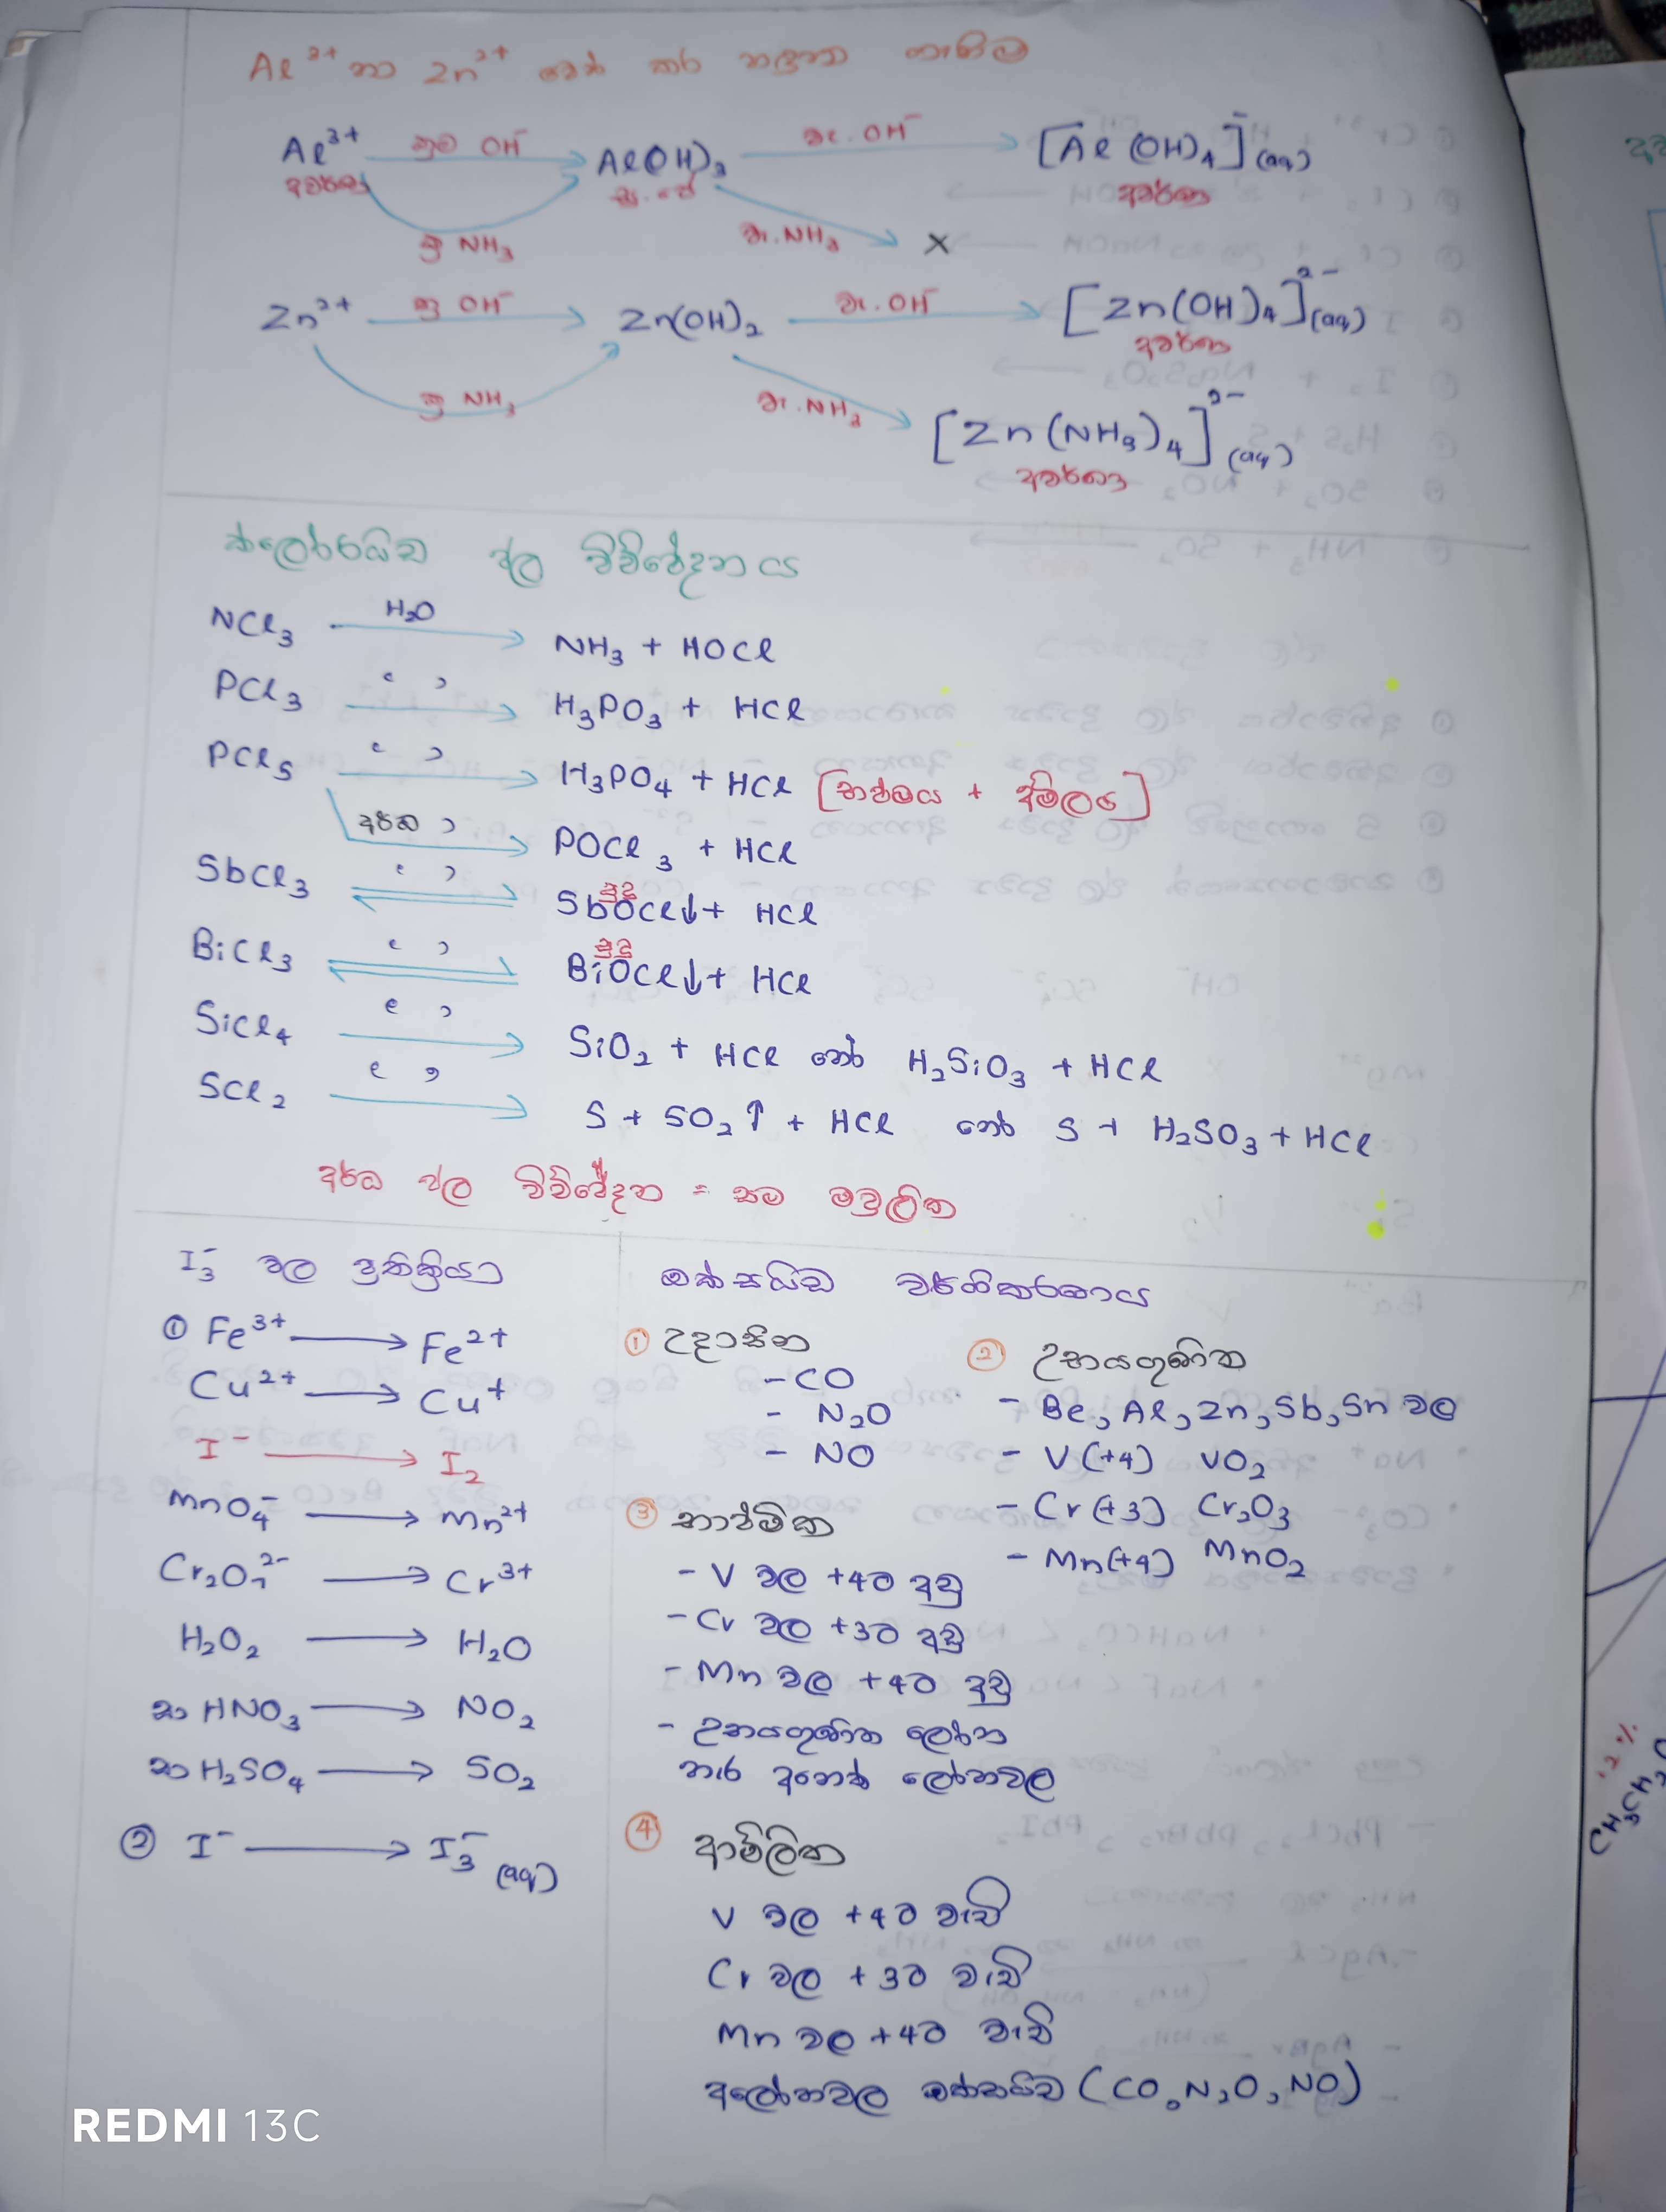 Al³⁺ හා Zn²⁺ වෙන් කර හඳුනා ගැනීම
Al³⁺ ක්‍රම OH⁻ → Al(OH)₃ වැ. OH⁻ → [Al(OH)₄]⁻(aq)
අවර්ණ සු. අවර්ණ
ක්‍ර NH₃ වැ. NH₃ → ×
Zn²⁺ ක්‍ර OH⁻ → Zn(OH)₂ වැ. OH⁻ → [Zn(OH)₄]²⁻(aq)
අවර්ණ
ක්‍ර NH₃ වැ. NH₃ → [Zn(NH₃)₄]²⁻(aq)
අවර්ණ
ක්ලෝරයිඩ ජල විච්ඡේදනය
NCl₃ H₂O → NH₃ + HOCl
PCl₃ " → H₃PO₃ + HCl
PCl₅ " → H₃PO₄ + HCl
අර්ධ " → POCl₃ + HCl
SbCl₃ " ⇌ SbOCl↓ + HCl
සුදු
BiCl₃ " ⇌ BiOCl↓ + HCl
සුදු
SiCl₄ " → SiO₂ + HCl හෝ H₂SiO₃ + HCl
SCl₂ " → S + SO₂↑ + HCl හෝ S + H₂SO₃ + HCl
අර්ධ ජල විච්ඡේදන = සම මවුලික
I₃⁻ වල ප්‍රතික්‍රියා
① Fe³⁺ → Fe²⁺
Cu²⁺ → Cu⁺
I⁻ → I₂
MnO₄⁻ → Mn²⁺
Cr₂O₇²⁻ → Cr³⁺
H₂O₂ → H₂O
සා HNO₃ → NO₂
සා H₂SO₄ → SO₂
② I⁻ → I₃⁻(aq)
ඔක්සයිඩ වර්ගීකරණය
① උදාසීන
- CO
- N₂O
- NO
② උභයගුණිත
- Be, Al, Zn, Sb, Sn වල
- V(+4) VO₂
- Cr(+3) Cr₂O₃
- Mn(+4) MnO₂
③ භාෂ්මික
- V වල +4ට අඩු
- Cr වල +3ට අඩු
- Mn වල +4ට අඩු
- උභයගුණිත ලෝහ
හැර අනෙක් ලෝහවල
④ ආම්ලික
V වල +4ට වැඩි
Cr වල +3ට වැඩි
Mn වල +4ට වැඩි
අලෝහවල ඔක්සයිඩ (CO, N₂O, NO)
12%
CH₃CH₂
REDMI 13C